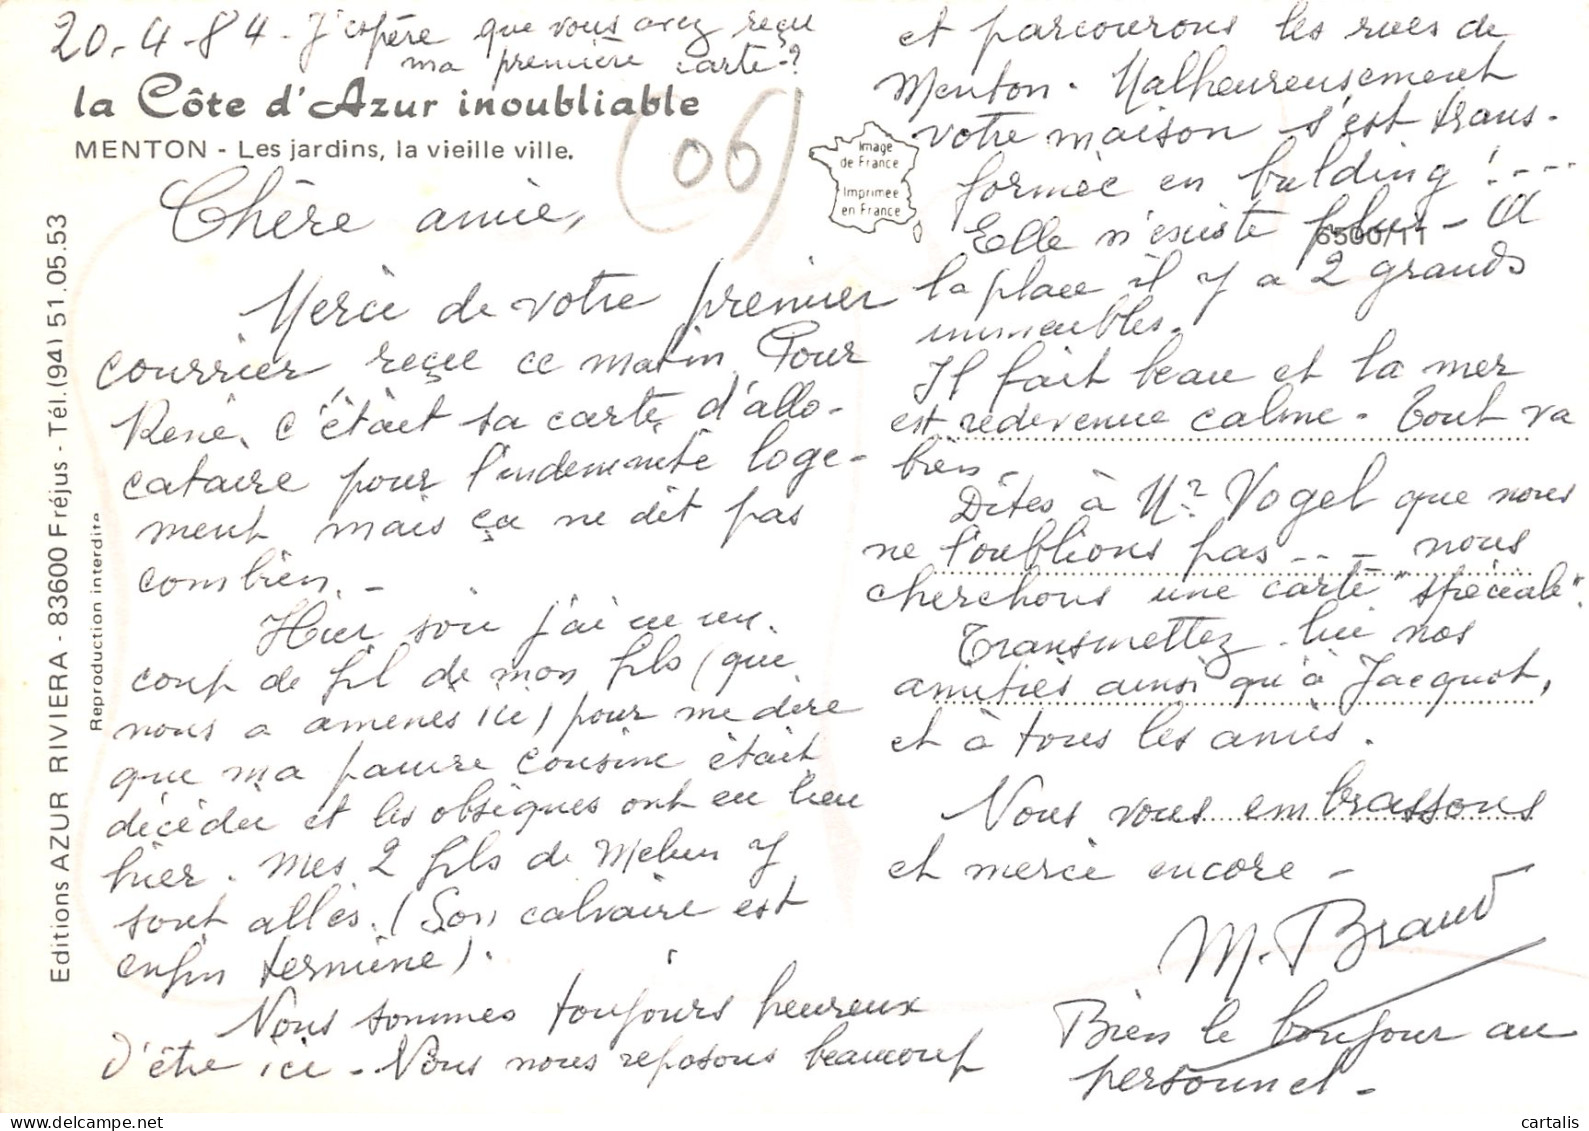 20-4-84 - J'espère que vous avez reçu
ma première carte - ?
la Côte d'Azur inoubliable
MENTON - Les jardins, la vieille ville.
(06)
Image
de France
Imprimée
en France
6500/11
Editions AZUR RIVIERA - 83600 Fréjus - Tél. (94) 51.05.53
Reproduction interdite
Chère amie,
Merci de votre premier
courrier reçue ce matin. Pour
René, c'était sa carte d'allo-
cataire pour l'indemnité loge-
ment mais ça ne dit pas
combien. -
Hier soir j'ai eu un
coup de fil de mon fils (qui
nous a amenés ici) pour me dire
que ma pauvre cousine était
décédée et les obsèques ont eu lieu
hier. Mes 2 fils de Melun y
sont allés. (Son calvaire est
enfin terminé).
Nous sommes toujours heureux
d'être ici - Nous nous reposons beaucoup
et parcourons les rues de
Menton. Malheureusement
votre maison s'est trans-
formée en bulding ! ----
Elle n'existe plus - A
la place il y a 2 grands
immeubles.
Il fait beau et la mer
est redevenue calme - Tout va
bien -
Dites à Mr Vogel que nous
ne l'oublions pas --- nous
cherchons une carte "spéciale".
Transmettez-lui nos
amitiés ainsi qu'à Jacquot,
et à tous les amis.
Nous vous embrassons
et merci encore -
M. Braud
Bien le bonjour au
personnel -
cartalis